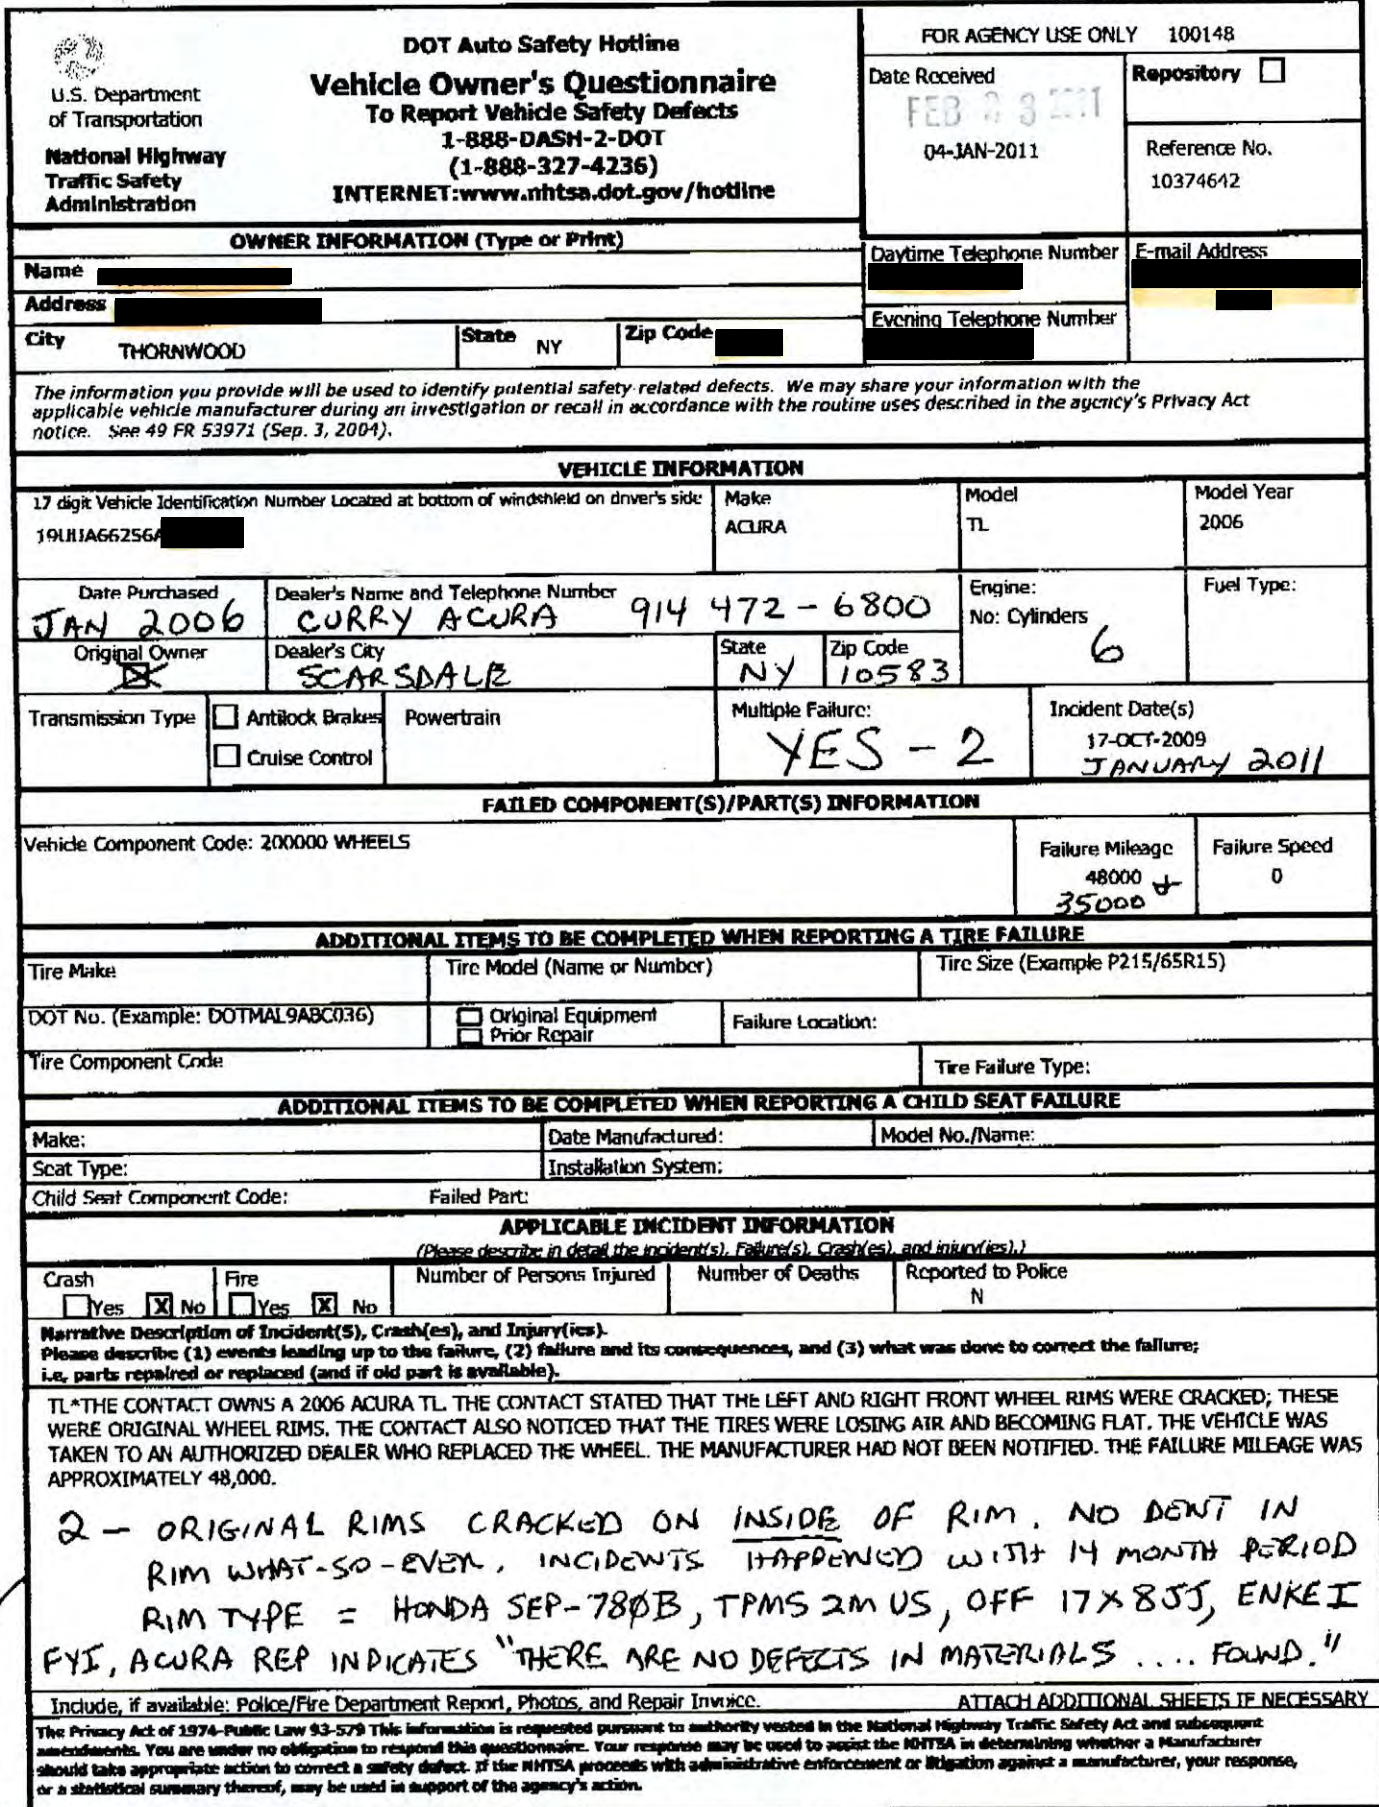 DOT Auto Safety Hotline
Vehicle Owner's Questionnaire
To Report Vehicle Safety Defects
1-888-DASH-2-DOT
(1-888-327-4236)
INTERNET:www.nhtsa.dot.gov/hotline
U.S. Department
of Transportation
National Highway
Traffic Safety
Administration
FOR AGENCY USE ONLY 100148
Date Received
FEB 2011
04-JAN-2011
Repository
Reference No.
10374642
OWNER INFORMATION (Type or Print)
Name
Address
City THORNWOOD State NY Zip Code
Daytime Telephone Number
E-mail Address
Evening Telephone Number
The information you provide will be used to identify potential safety-related defects. We may share your information with the
applicable vehicle manufacturer during an investigation or recall in accordance with the routine uses described in the agency's Privacy Act
notice. See 49 FR 53971 (Sep. 3, 2004).
VEHICLE INFORMATION
17 digit Vehicle Identification Number Located at bottom of windshield on driver's side
19UUA66256A
Make
ACURA
Model
TL
Model Year
2006
Date Purchased
JAN 2006
Dealer's Name and Telephone Number
CURRY ACURA 914 472-6800
Engine:
No: Cylinders
6
Fuel Type:
Original Owner
Dealer's City
SCARSDALE
State
NY
Zip Code
10583
Transmission Type
Antilock Brakes
Cruise Control
Powertrain
Multiple Failure:
YES - 2
Incident Date(s)
17-OCT-2009
JANUARY 2011
FAILED COMPONENT(S)/PART(S) INFORMATION
Vehicle Component Code: 200000 WHEELS
Failure Mileage
48000 +
35000
Failure Speed
0
ADDITIONAL ITEMS TO BE COMPLETED WHEN REPORTING A TIRE FAILURE
Tire Make
Tire Model (Name or Number)
Tire Size (Example P215/65R15)
DOT No. (Example: DOTMAL9ABC036)
Original Equipment
Prior Repair
Failure Location:
Tire Component Code
Tire Failure Type:
ADDITIONAL ITEMS TO BE COMPLETED WHEN REPORTING A CHILD SEAT FAILURE
Make:
Date Manufactured:
Model No./Name:
Seat Type:
Installation System:
Child Seat Component Code: Failed Part:
APPLICABLE INCIDENT INFORMATION
(Please describe in detail the incident(s), Failure(s), Crash(es), and injury(ies).)
Crash
Yes X No
Fire
Yes X No
Number of Persons Injured
Number of Deaths
Reported to Police
N
Narrative Description of Incident(S), Crash(es), and Injury(ies).
Please describe (1) events leading up to the failure, (2) failure and its consequences, and (3) what was done to correct the failure;
i.e, parts repaired or replaced (and if old part is available).
TL*THE CONTACT OWNS A 2006 ACURA TL. THE CONTACT STATED THAT THE LEFT AND RIGHT FRONT WHEEL RIMS WERE CRACKED; THESE
WERE ORIGINAL WHEEL RIMS. THE CONTACT ALSO NOTICED THAT THE TIRES WERE LOSING AIR AND BECOMING FLAT. THE VEHICLE WAS
TAKEN TO AN AUTHORIZED DEALER WHO REPLACED THE WHEEL. THE MANUFACTURER HAD NOT BEEN NOTIFIED. THE FAILURE MILEAGE WAS
APPROXIMATELY 48,000.
2 - ORIGINAL RIMS CRACKED ON INSIDE OF RIM. NO DENT IN
RIM WHAT-SO-EVER. INCIDENTS HAPPENED WITH 14 MONTH PERIOD
RIM TYPE = HONDA SEP-780B, TPMS 2M US, OFF 17X8JJ, ENKEI
FYI, ACURA REP INDICATES "THERE ARE NO DEFECTS IN MATERIALS .... FOUND."
Include, if available: Police/Fire Department Report, Photos, and Repair Invoice. ATTACH ADDITIONAL SHEETS IF NECESSARY
The Privacy Act of 1974-Public Law 93-579 This information is requested pursuant to authority vested in the National Highway Traffic Safety Act and subsequent
amendments. You are under no obligation to respond this questionnaire. Your response may be used to assist the NHTSA in determining whether a Manufacturer
should take appropriate action to correct a safety defect. If the NHTSA proceeds with administrative enforcement or litigation against a manufacturer, your response,
or a statistical summary thereof, may be used in support of the agency's action.